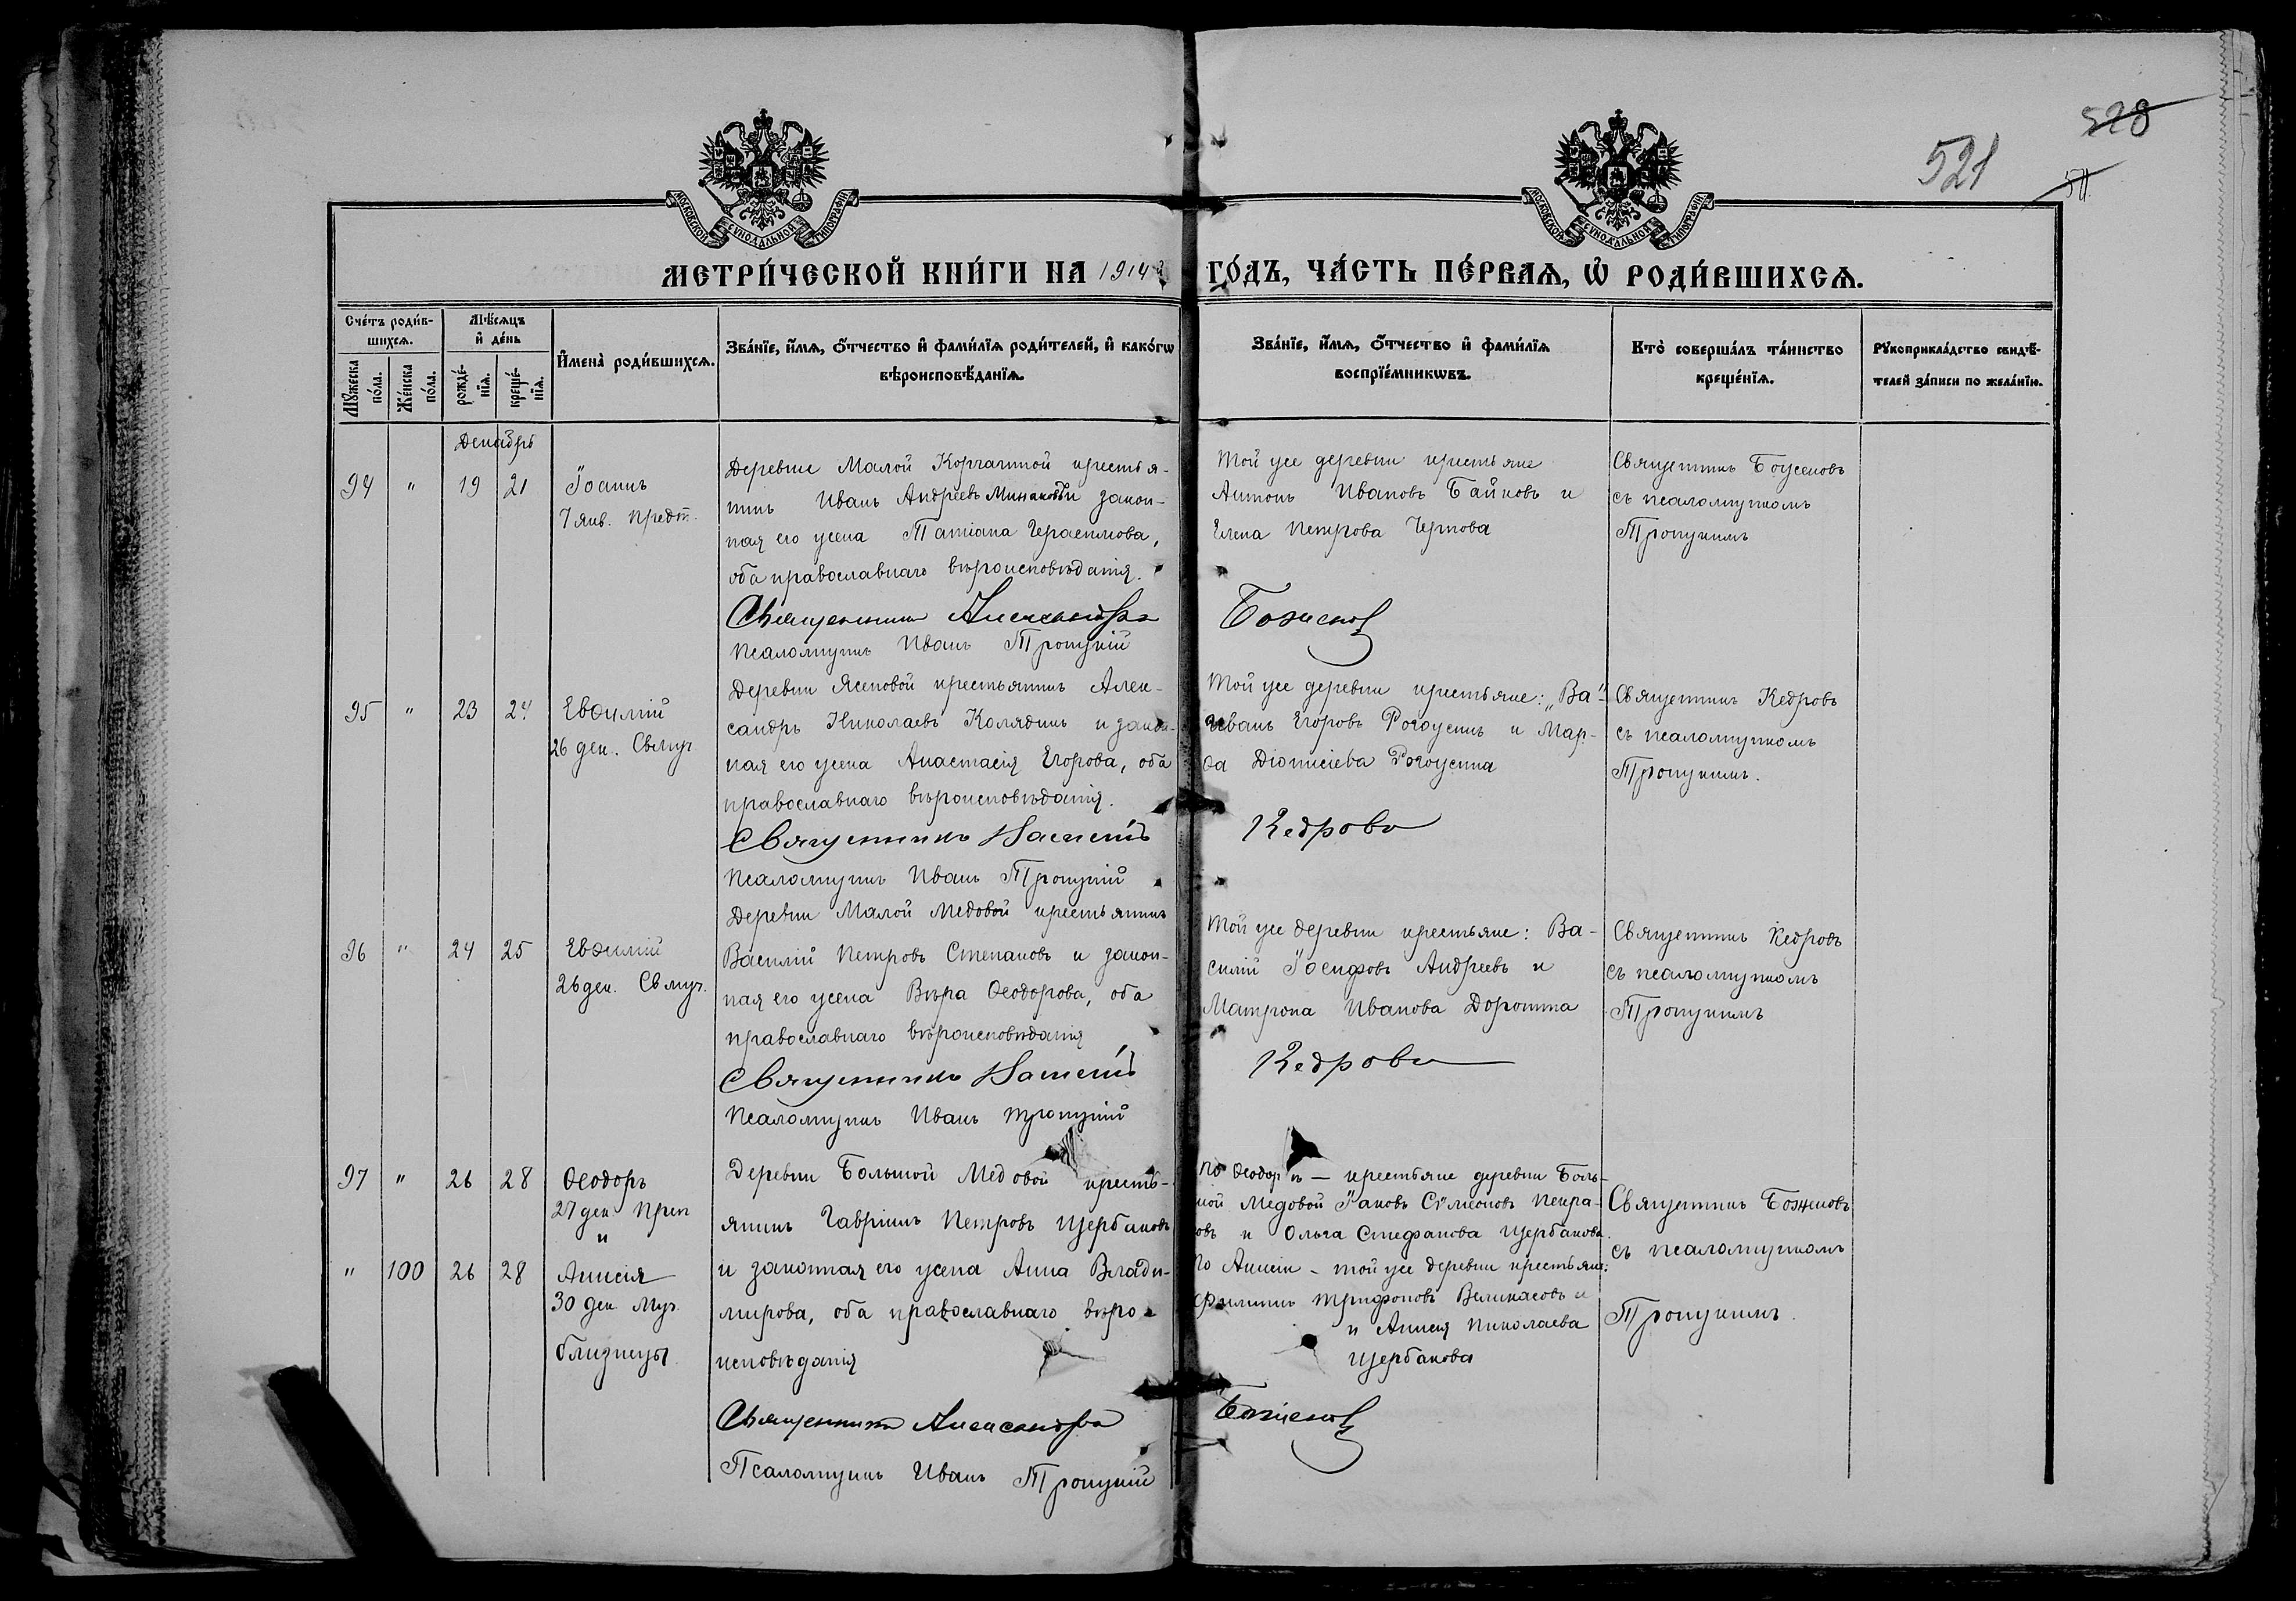 528
521
511
МОСКОВСКОЙ СѴНОДАЛЬНОЙ ТИПОГРАФІИ
МОСКОВСКОЙ СѴНОДАЛЬНОЙ ТИПОГРАФІИ
МЕТРИ́ЧЕСКОЙ КНИ́ГИ НА 1914 й ГО́ДЪ, ЧА́СТЬ ПЕ́РВАѦ, Ѡ҆ РОДИ́ВШИХСѦ.
Сче́тъ роди́в-
шихсѧ.
Мꙋ́жеска по́ла.
Же́нска по́ла.
Мѣ́сѧцъ и҆ де́нь
рожде́-нїѧ.
креще́-нїѧ.
И҆мена̀ роди́вшихсѧ.
Зва́нїе, и҆́мѧ, ѻ҆́тчество и҆ фами́лїѧ роди́телей, и҆ како́гѡ
вѣроисповѣ́данїѧ.
Зва́нїе, и҆́мѧ, ѻ҆́тчество и҆ фами́лїѧ
воспрїе́мникѡвъ.
Кто̀ соверша́лъ та́инство
креще́нїѧ.
Рꙋкоприкла́дство свидѣ́-
телей за́писи по жела́нїю.
Декабрь
94 " 19 21
Іоаннъ
7 янв. Предт.
Деревни Малой Корчагиной крестья-
нинъ Иванъ Андреевъ Минаковъ и закон-
ная его жена Татіана Герасимова,
оба православнаго вѣроисповѣданія.
Священникъ Александръ
Псаломщикъ Иванъ Троицкій
Той же деревни крестьяне
Антонъ Ивановъ Байковъ и
Елена Петрова Чернова
Боженовъ
Священникъ Боженовъ
съ псаломщикомъ
Троицкимъ
95 " 23 24
Евѳимій
26 дек. Свмуч
Деревни Ясеновой крестьянинъ Алек-
сандръ Николаевъ Колядинъ и закон-
ная его жена Анастасія Егорова, оба
православнаго вѣроисповѣданія.
Священникъ
Псаломщикъ Иванъ Троицкій
Той же деревни крестьяне: "Ва"-
Иванъ Егоровъ Рогожинъ и Мар-
ѳа Діонисіева Рогожина
Кедровъ
Священникъ Кедровъ
съ псаломщикомъ
Троицкимъ.
96 " 24 25
Евѳимій
26 дек. Свмуч.
Деревни Малой Медовой крестьянинъ
Василій Петровъ Степановъ и закон-
ная его жена Вѣра Ѳеодорова, оба
православнаго вѣроисповѣданія
Священникъ
Псаломщикъ Иванъ Троицкій
Той же деревни крестьяне: Ва-
силій Іосифовъ Андреевъ и
Матрона Иванова Доронина
Кедровъ
Священникъ Кедровъ
съ псаломщикомъ
Троицкимъ
97 " 26 28
Ѳеодоръ
27 дек Преп
и
" 100 26 28
Анисія
30 дек Муч.
близнецы.
Деревни Большой Медовой кресть-
янинъ Гавріилъ Петровъ Щербаковъ
и законная его жена Анна Влади-
мирова, оба православнаго вѣро-
исповѣданія
Священникъ Александръ
Псаломщикъ Иванъ Троицкій
по Ѳеодорѣ — крестьяне деревни Боль-
шой Медовой Іаковъ Сѵмеоновъ Некра-
совъ и Ольга Стефанова Щербакова
по Анисіи - той же деревни крестьяне:
Филиппъ Трифоновъ Великасовъ и
и Анисія Николаева
Щербакова
Боженовъ
Священникъ Боженовъ
съ псаломщикомъ
Троицкимъ.